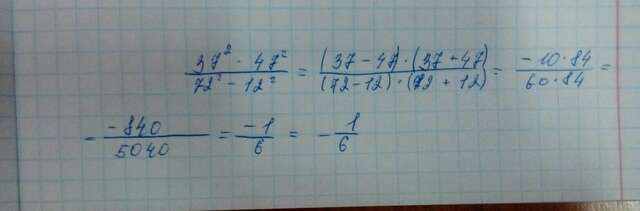 (37² - 47²)/(72² - 12²) = ((37 - 47) · (37 + 47))/((72 - 12) · (72 + 12)) = (-10 · 84)/(60 · 84) =
= (-840)/5040 = (-1)/6 = - 1/6